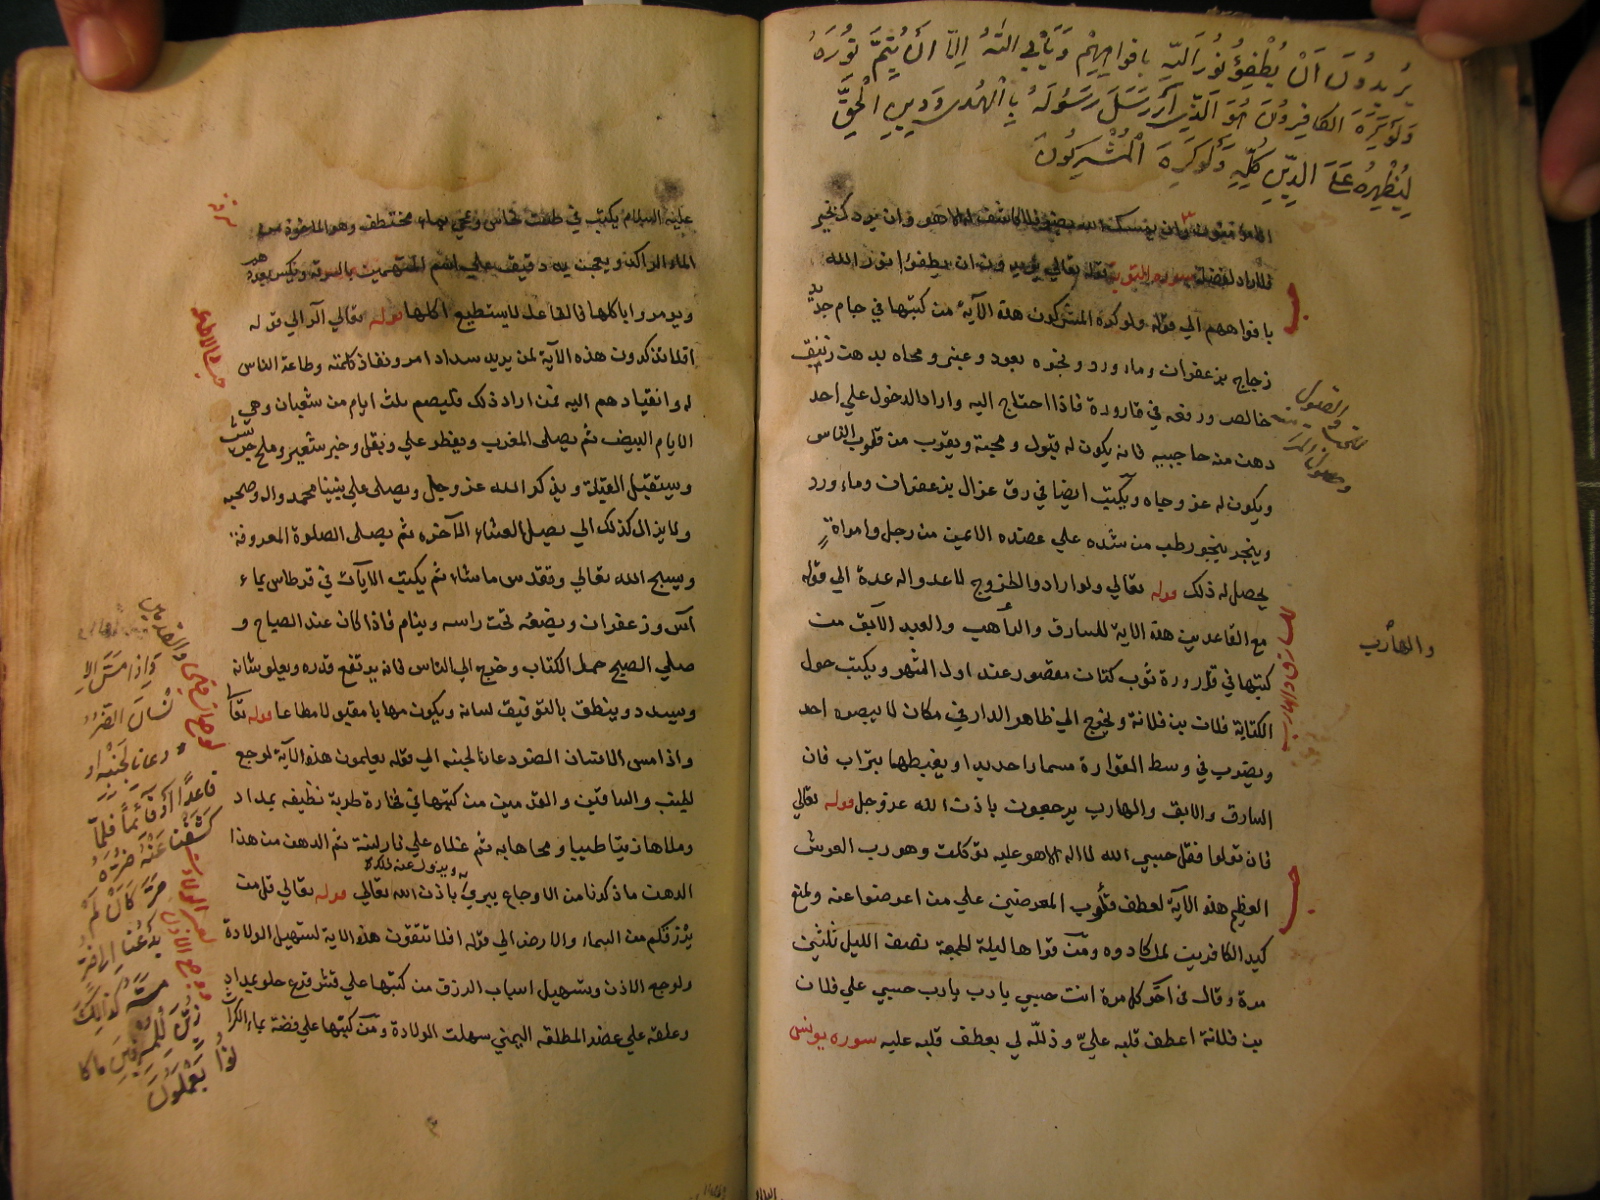 يُرِيدُونَ اَنْ يُطْفِؤُ نُورَ اَللّهِ بِافواهِهِمْ وَيَأْبي اللّهُ اِلّا اَنْ يُتِمَّ نُورَهُ
وَلَوْ كَرِهَ الكافِرُونَ هُوَ اَلَّذِي اَرْسَلَ رَسُولَهُ بِالْهُدى وَدِينِ الْحَقِّ
لِيُظْهِرَهُ عَلىَ الدِّينِ كُلِّهِ وَلَوكَرِهَ الْمُشْرِكُونَ
وان يمسسك الله بضر فلا كاشف له الا هو وان يردك بخير
فلا راد لفضله سوره التوبة قوله تعالي يريدون ان يطفؤا نور الله
بافواههم الي قوله ولو كره المشركون هذه الآية من كتبها في جام
زجاج بزعفران وماء ورد وبخره بعود وعنبر ومحاه بدهن زنبق
خالص ورفعه في قارورة فاذا احتاج اليه واراد الدخول علي احد
دهن منه حاجبيه فانه يكون له قبول ومحبة ويقرب من قلوب الناس
ويكون له عز وجاه ويكتب ايضا في رق غزال بزعفران وماء ورد
ويبخر ببخور طيب من شده علي عضده الايمن من رجل وامراة
يحصل له ذلك قوله تعالي ولو ارادوا الخروج لاعدوا له عدة الي قوله
مع القاعدين هذه الاية للسارق والذاهب والعبد الآبق من
كتبها في قوارة ثوب كتان مقصور عند اول الشهر ويكتب حول
الكتابة فلان بن فلانة ويخرج الي ظاهر الدار في مكان لا يبصره احد
ويضرب في وسط القوارة مسمارا حديدا ويغيطها بتراب فان
السارق والابق والهارب يرجعون باذن الله عز وجل قوله تعالي
فان تولوا فقل حسبي الله لا اله الا هو عليه توكلت وهو رب العرش
العظيم هذه الآية لعطف قلوب المعرضين علي من اعرضوا عنه ولمنع
كيد الكافرين لمن كادوه ومن قراها ليلة الجمعة نصف الليل ثلثين
مرة وقال في آخر كل مرة انت حسبي يا رب يا رب حسبي علي فلان
بن فلانة اعطف قلبه عليّ وذلّله لي يعطف قلبه عليه سوره يونس
والهارب
للسارق والهارب
عليه السلام يكتب في طشت نحاس ومحي بماء مختطف وهو الماخوذ من
الماء الراكد ويعجن به دقيق علي اسم المتهمين بالسرقة
ويومروا باكلها فالفاعل لا يستطيع اكلها قوله تعالي آلر الي قوله
افلا تذكرون هذه الآية لمن يريد سداد امر ونفاذ كلمته وطاعة الناس
له وانقيادهم اليه فمن اراد ذلك فليصم ثلث ايام من شعبان وهي
الايام البيض ثم يصلي المغرب ويفطر علي وبقل وخبز شعير وملح جريش
ويستقبل القبلة ويذكر الله عز وجل ويصلي علي نبينا محمد واله وصحبه
ولا يزال كذلك الي يصل العشاء الآخره ثم يصلي الصلوة المعروفة
ويسبح الله تعالي ويقدس ما شاء ثم يكتب الايات في قرطاس بماء
آس وزعفران ويضعه تحت راسه وينام فاذا كان عند الصباح و
صلي الصبح حمل الكتاب وخرج الي الناس فانه يرتفع قدره ويعلو شانه
ويسدد وينطق بالتوفيق لسانه ويكون مهابا مقبولا مطاعا قوله تعا
واذا مس الانسان الضر دعانا لجنبه الي قوله يعملون هذه الآية لوجع
الجنب والساقين والقدمين من كتبها في فخارة طرية نظيفه بمداد
وملاها زيتا طيبا ومحاها به ثم غلاه علي نار لينة ثم الدهن من هذا
ويزول عنه
الدهن ما ذكرنا من الاوجاع يبري باذن الله تعالي قوله تعالي قل من
يرزقكم من السماء والارض الي قوله افلا تتقون هذه الاية لتسهيل الولادة
ولوجع الاذن وتسهيل اسباب الرزق من كتبها علي قشر قرع حلو بمداد
وعلقه علي عضد المطلقه اليمني سهلت الولادة ومن كتبها علي فضة بماء الكراث
وَاِذا مَسَّ الاِ
نْسانَ الضُّرُّ
دعانا لِجَنْبِهِ اَوْ
قاعِدًا اَوْ قائِماً فَلمَّا
كَشَفْنا عَنْهُ ضُرَّهُ
مَرَّ كَاَنْ لَمْ
يَدْعُنا اِلى ضُرٍّ
مَسَّهُ كَذَلِكَ
زُيِّنَ لِلْمُسْرِفينَ ما كا
نُوا يَعْمَلُونَ